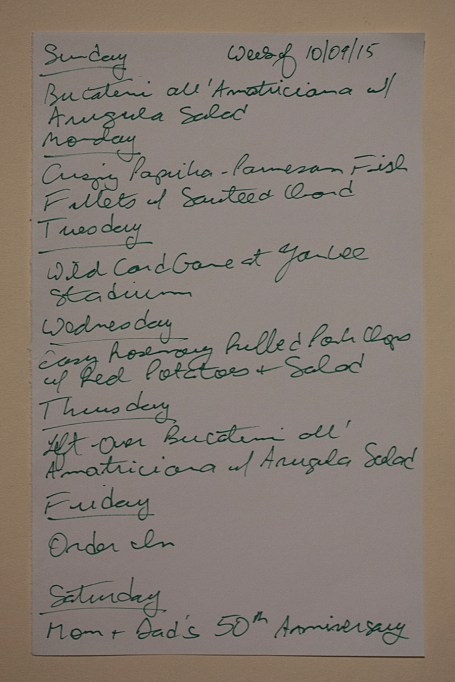 Sunday Week of 10/09/15
Bucatini all'Amatriciana w/
Arugula Salad
Monday
Crispy Paprika-Parmesan Fish
Fillets w/ Sauteed Chard
Tuesday
Wild Card Game at Yankee
Stadium
Wednesday
Easy Rosemary Pork Chops
w/ Red Potatoes + Salad
Thursday
Left-Over Bucatini all'
Amatriciana w/ Arugula Salad
Friday
Order In
Saturday
Mom + Dad's 50th Anniversary